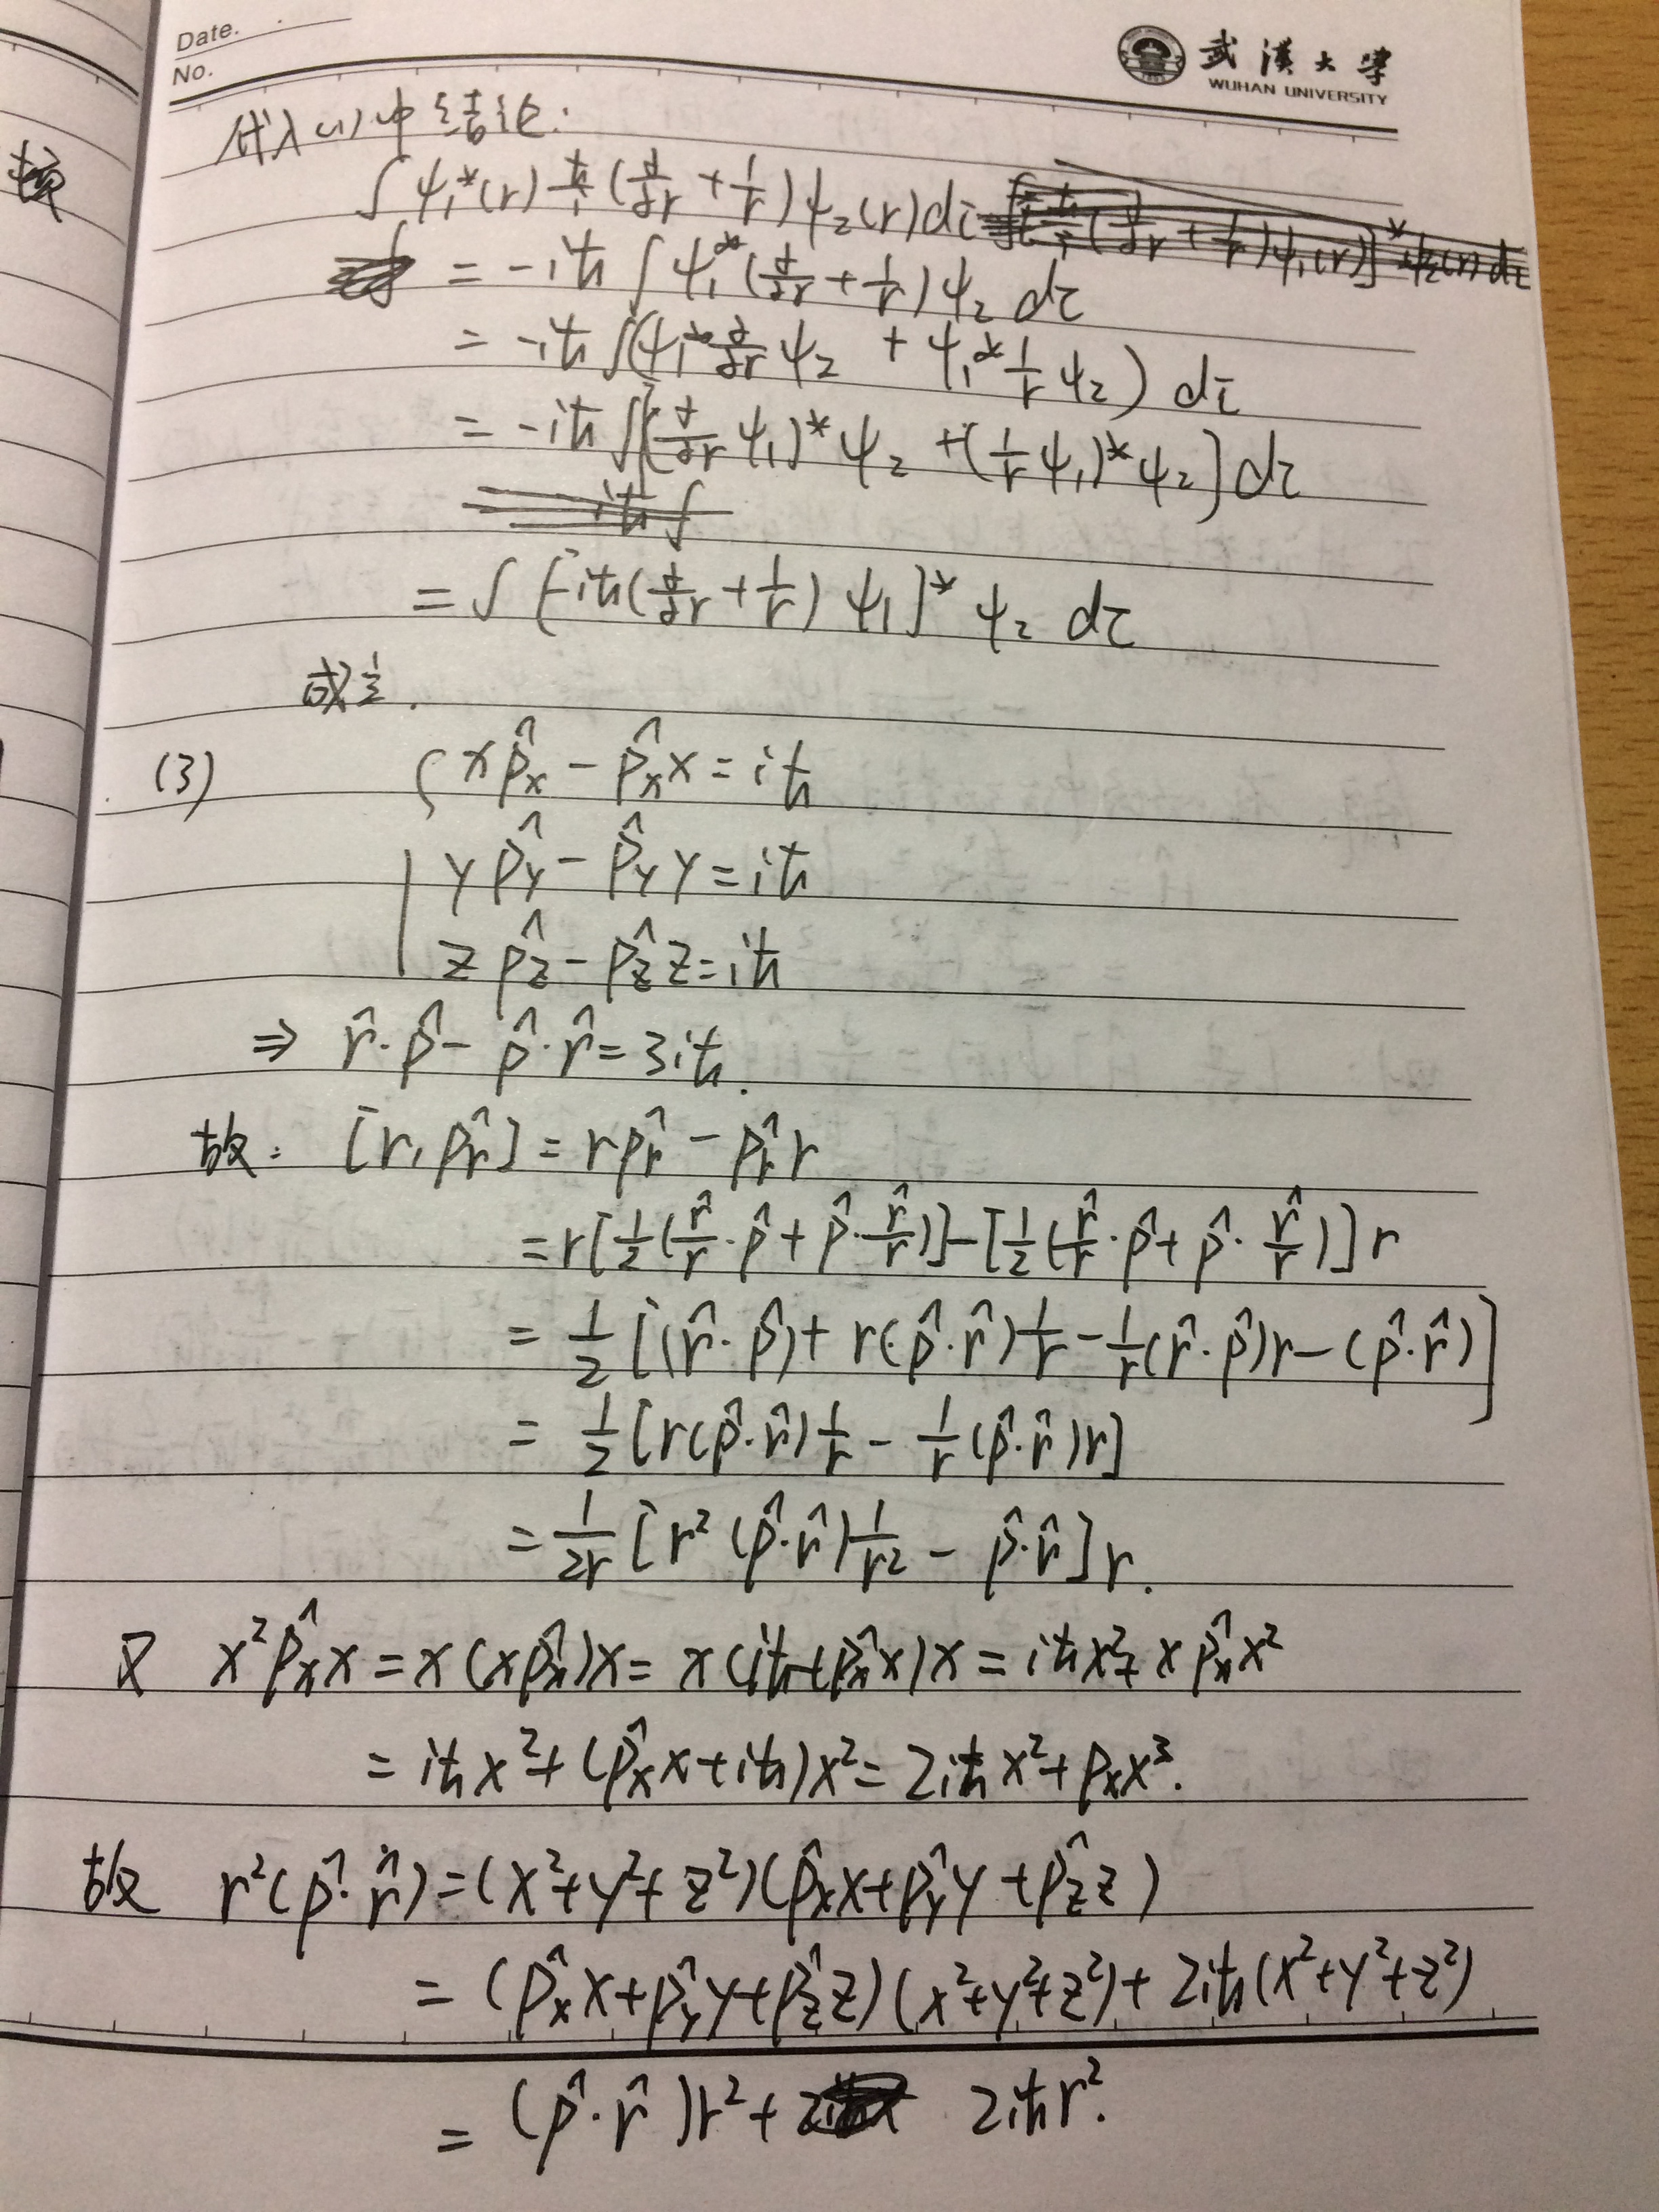 Date.
No.
武漢大學
WUHAN UNIVERSITY
代入(1)中结论:
∫ψ₁*(r) ħ/i (∂/∂r + 1/r) ψ₂(r) dτ
= -iħ ∫ ψ₁* (∂/∂r + 1/r) ψ₂ dτ
= -iħ ∫(ψ₁* ∂/∂r ψ₂ + ψ₁* 1/r ψ₂) dτ
= -iħ ∫[(∂/∂r ψ₁)* ψ₂ + (1/r ψ₁)* ψ₂] dτ
= ∫ [-iħ(∂/∂r + 1/r) ψ₁]* ψ₂ dτ
成立.
(3) { x p̂x - p̂x x = iħ
y p̂y - p̂y y = iħ
z p̂z - p̂z z = iħ
⇒ r̂·p̂ - p̂·r̂ = 3iħ.
故: [r, p̂r] = r p̂r - p̂r r
= r[1/2(r̂/r·p̂ + p̂·r̂/r)] - [1/2(r̂/r·p̂ + p̂·r̂/r)] r
= 1/2 [(r̂·p̂) + r(p̂·r̂)1/r - 1/r(r̂·p̂)r - (p̂·r̂)]
= 1/2 [r(p̂·r̂)1/r - 1/r(p̂·r̂)r]
= 1/2r [r²(p̂·r̂)1/r² - p̂·r̂] r.
又 x² p̂x x = x(x p̂x)x = x(iħ + p̂x x)x = iħx² + x p̂x x²
= iħx² + (p̂x x + iħ)x² = 2iħx² + px x³.
故 r²(p̂·r̂) = (x²+y²+z²)(p̂x x + p̂y y + p̂z z)
= (p̂x x + p̂y y + p̂z z)(x²+y²+z²) + 2iħ(x²+y²+z²)
= (p̂·r̂)r² + 2iħr².